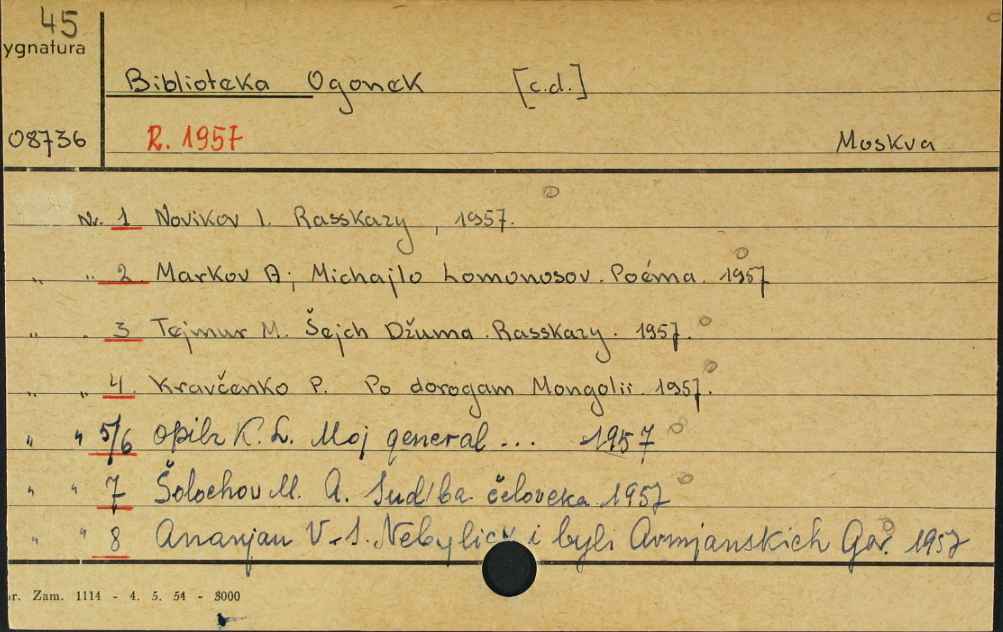 45
ygnatura
Biblioteka Ogonek [c.d.]
08736 R. 1957 Moskva
Nr. 1 Novikov I. Rasskazy, 1957.
" " 2 Markov A; Michajlo Lomonosov. Poéma. 1957
" . 3 Tejmur M. Šejch Džuma. Rasskazy. 1957.
" " 4. Kravčenko P. Po dorogam Mongolii. 1957.
" " 5/6 K. L. Moj general ... 1957
" " 7 Šolochov M. A. Sud'ba čeloveka 1957
" " 8 Ananjan V. S. Nebylicy i byli Armjanskich Gor. 1957
r. Zam. 1114 - 4. 5. 54 - 8000